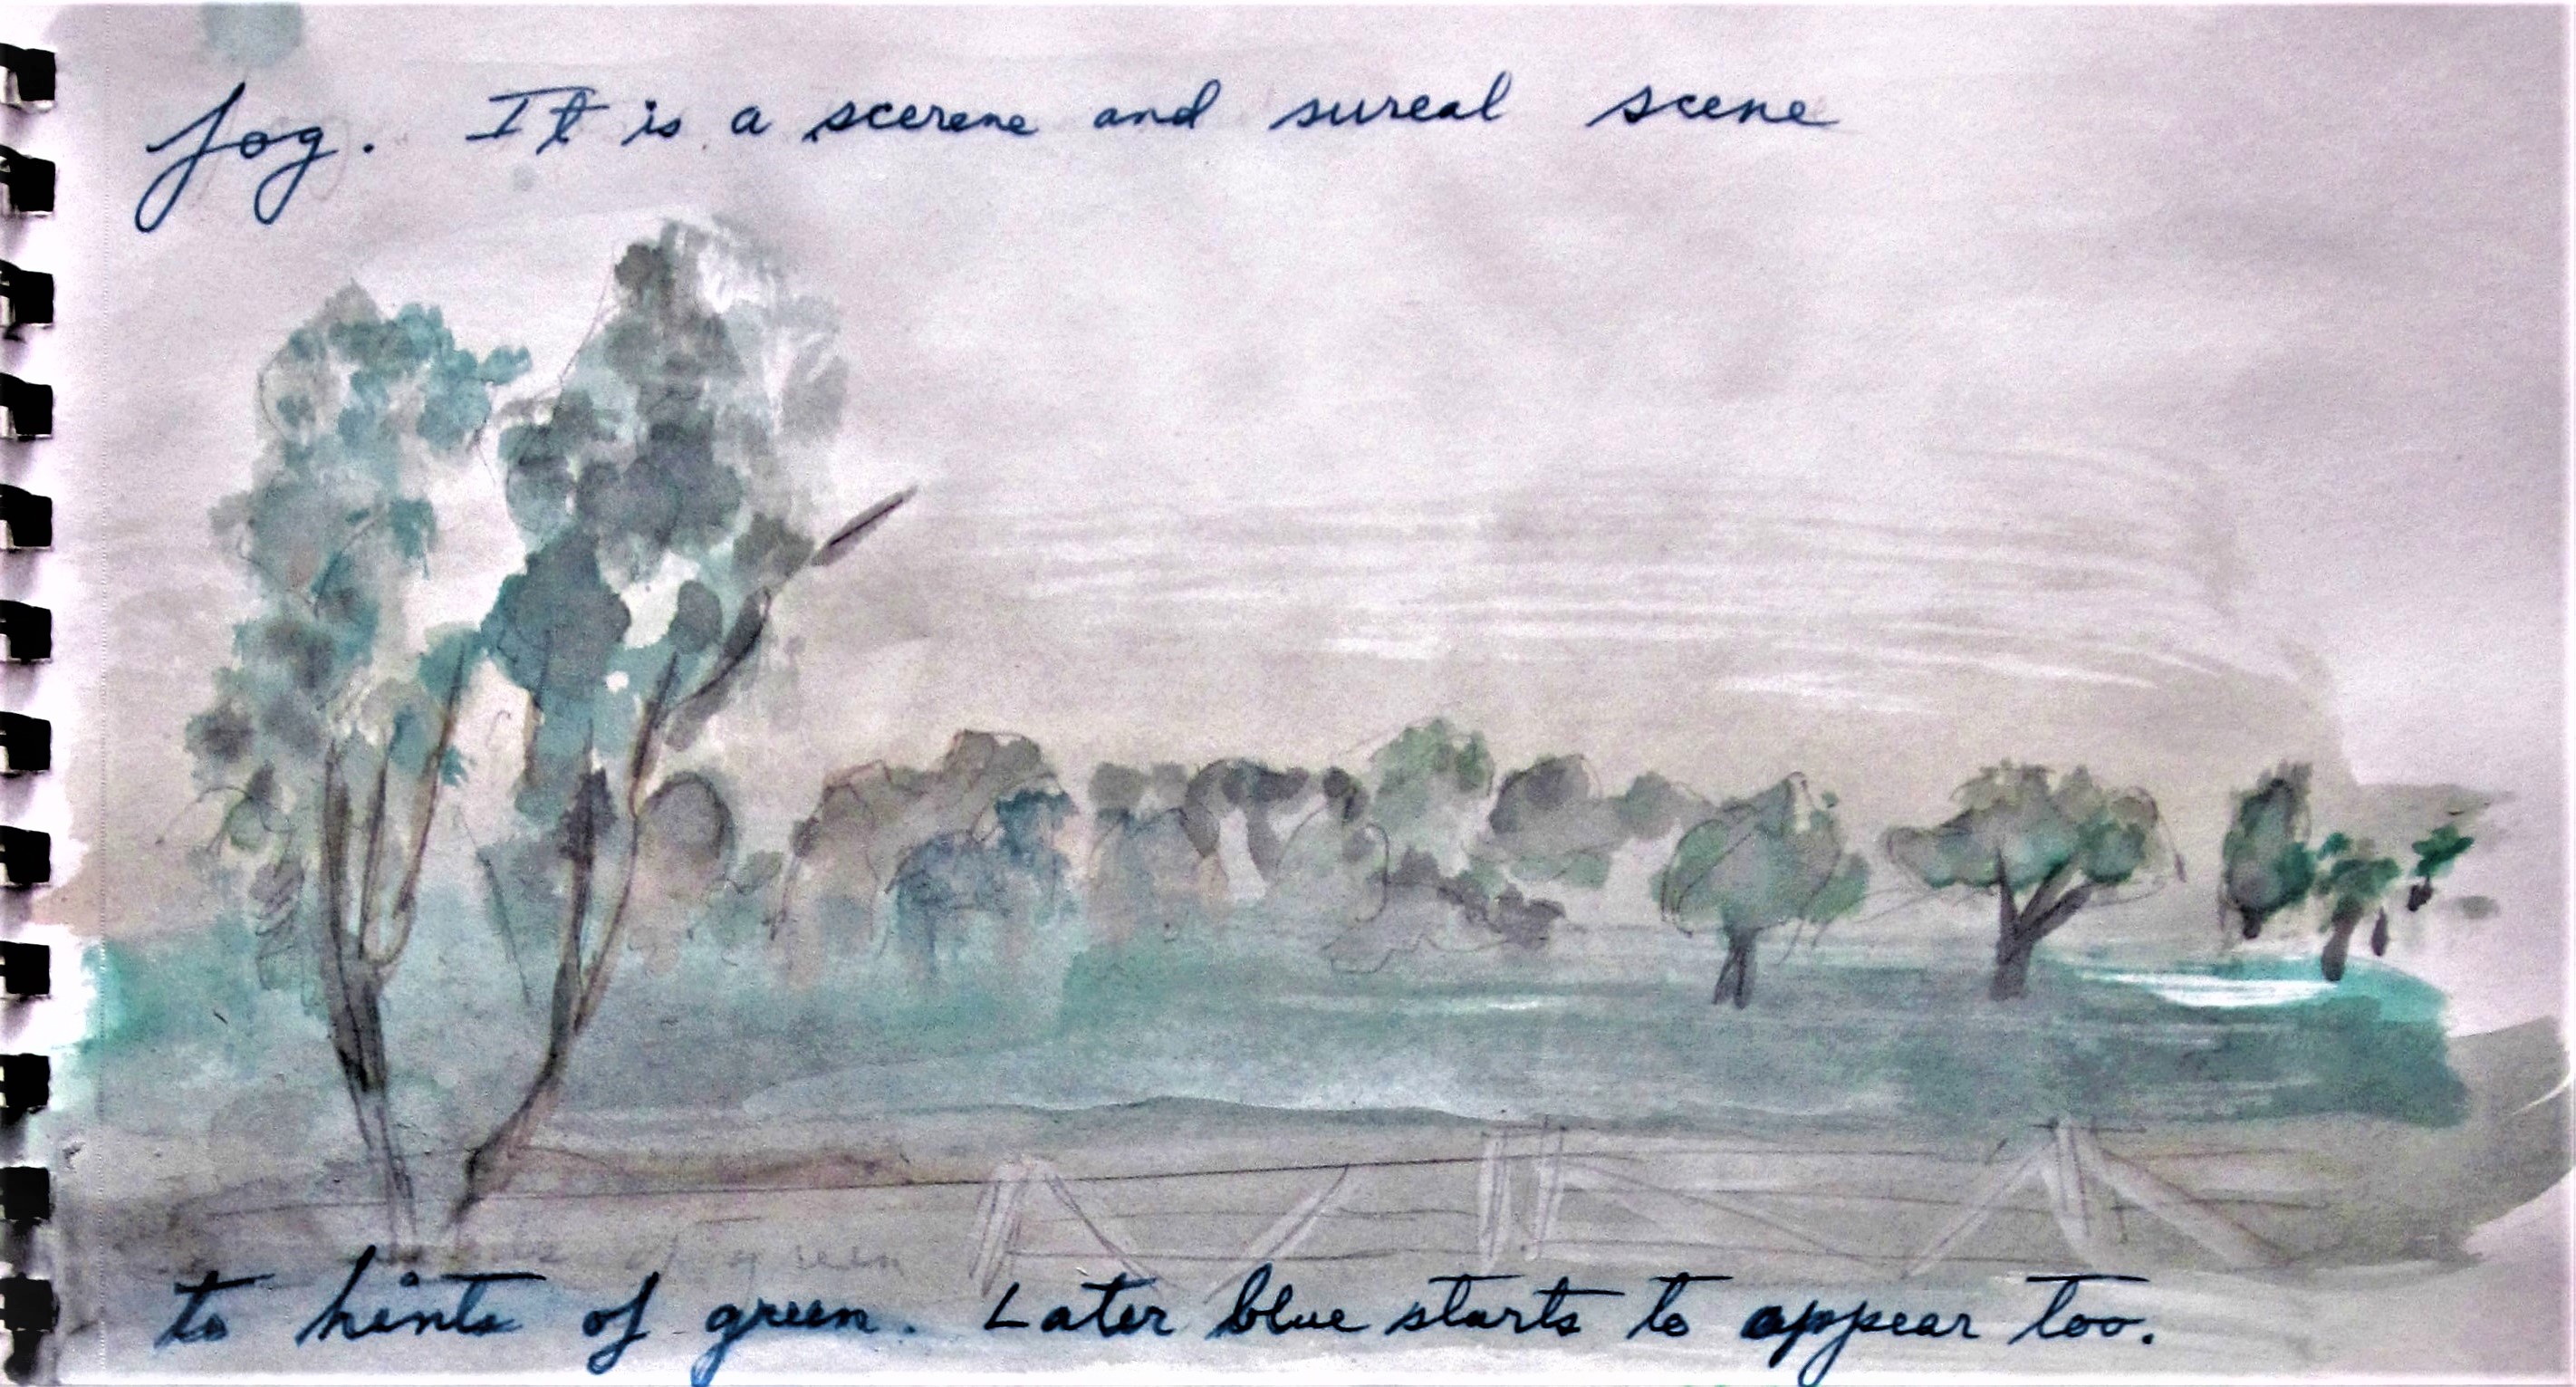 fog. It is a scerene and sureal scene
to hints of green. Later blue starts to appear too.